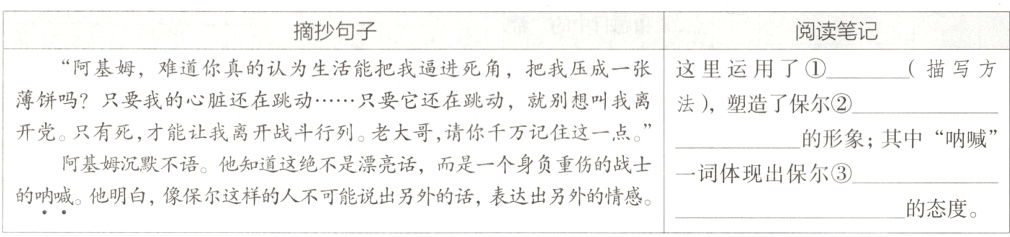 摘抄句子
阅读笔记
“阿基姆，难道你真的认为生活能把我逼进死角，把我压成一张
薄饼吗？只要我的心脏还在跳动……只要它还在跳动，就别想叫我离
开党。只有死，才能让我离开战斗行列。老大哥，请你千万记住这一点。”
阿基姆沉默不语。他知道这绝不是漂亮话，而是一个身负重伤的战士
的呐喊。他明白，像保尔这样的人不可能说出另外的话，表达出另外的情感。
这里运用了①________（描写方
法），塑造了保尔②______________
____________的形象；其中“呐喊”
一词体现出保尔③______________
______________________的态度。